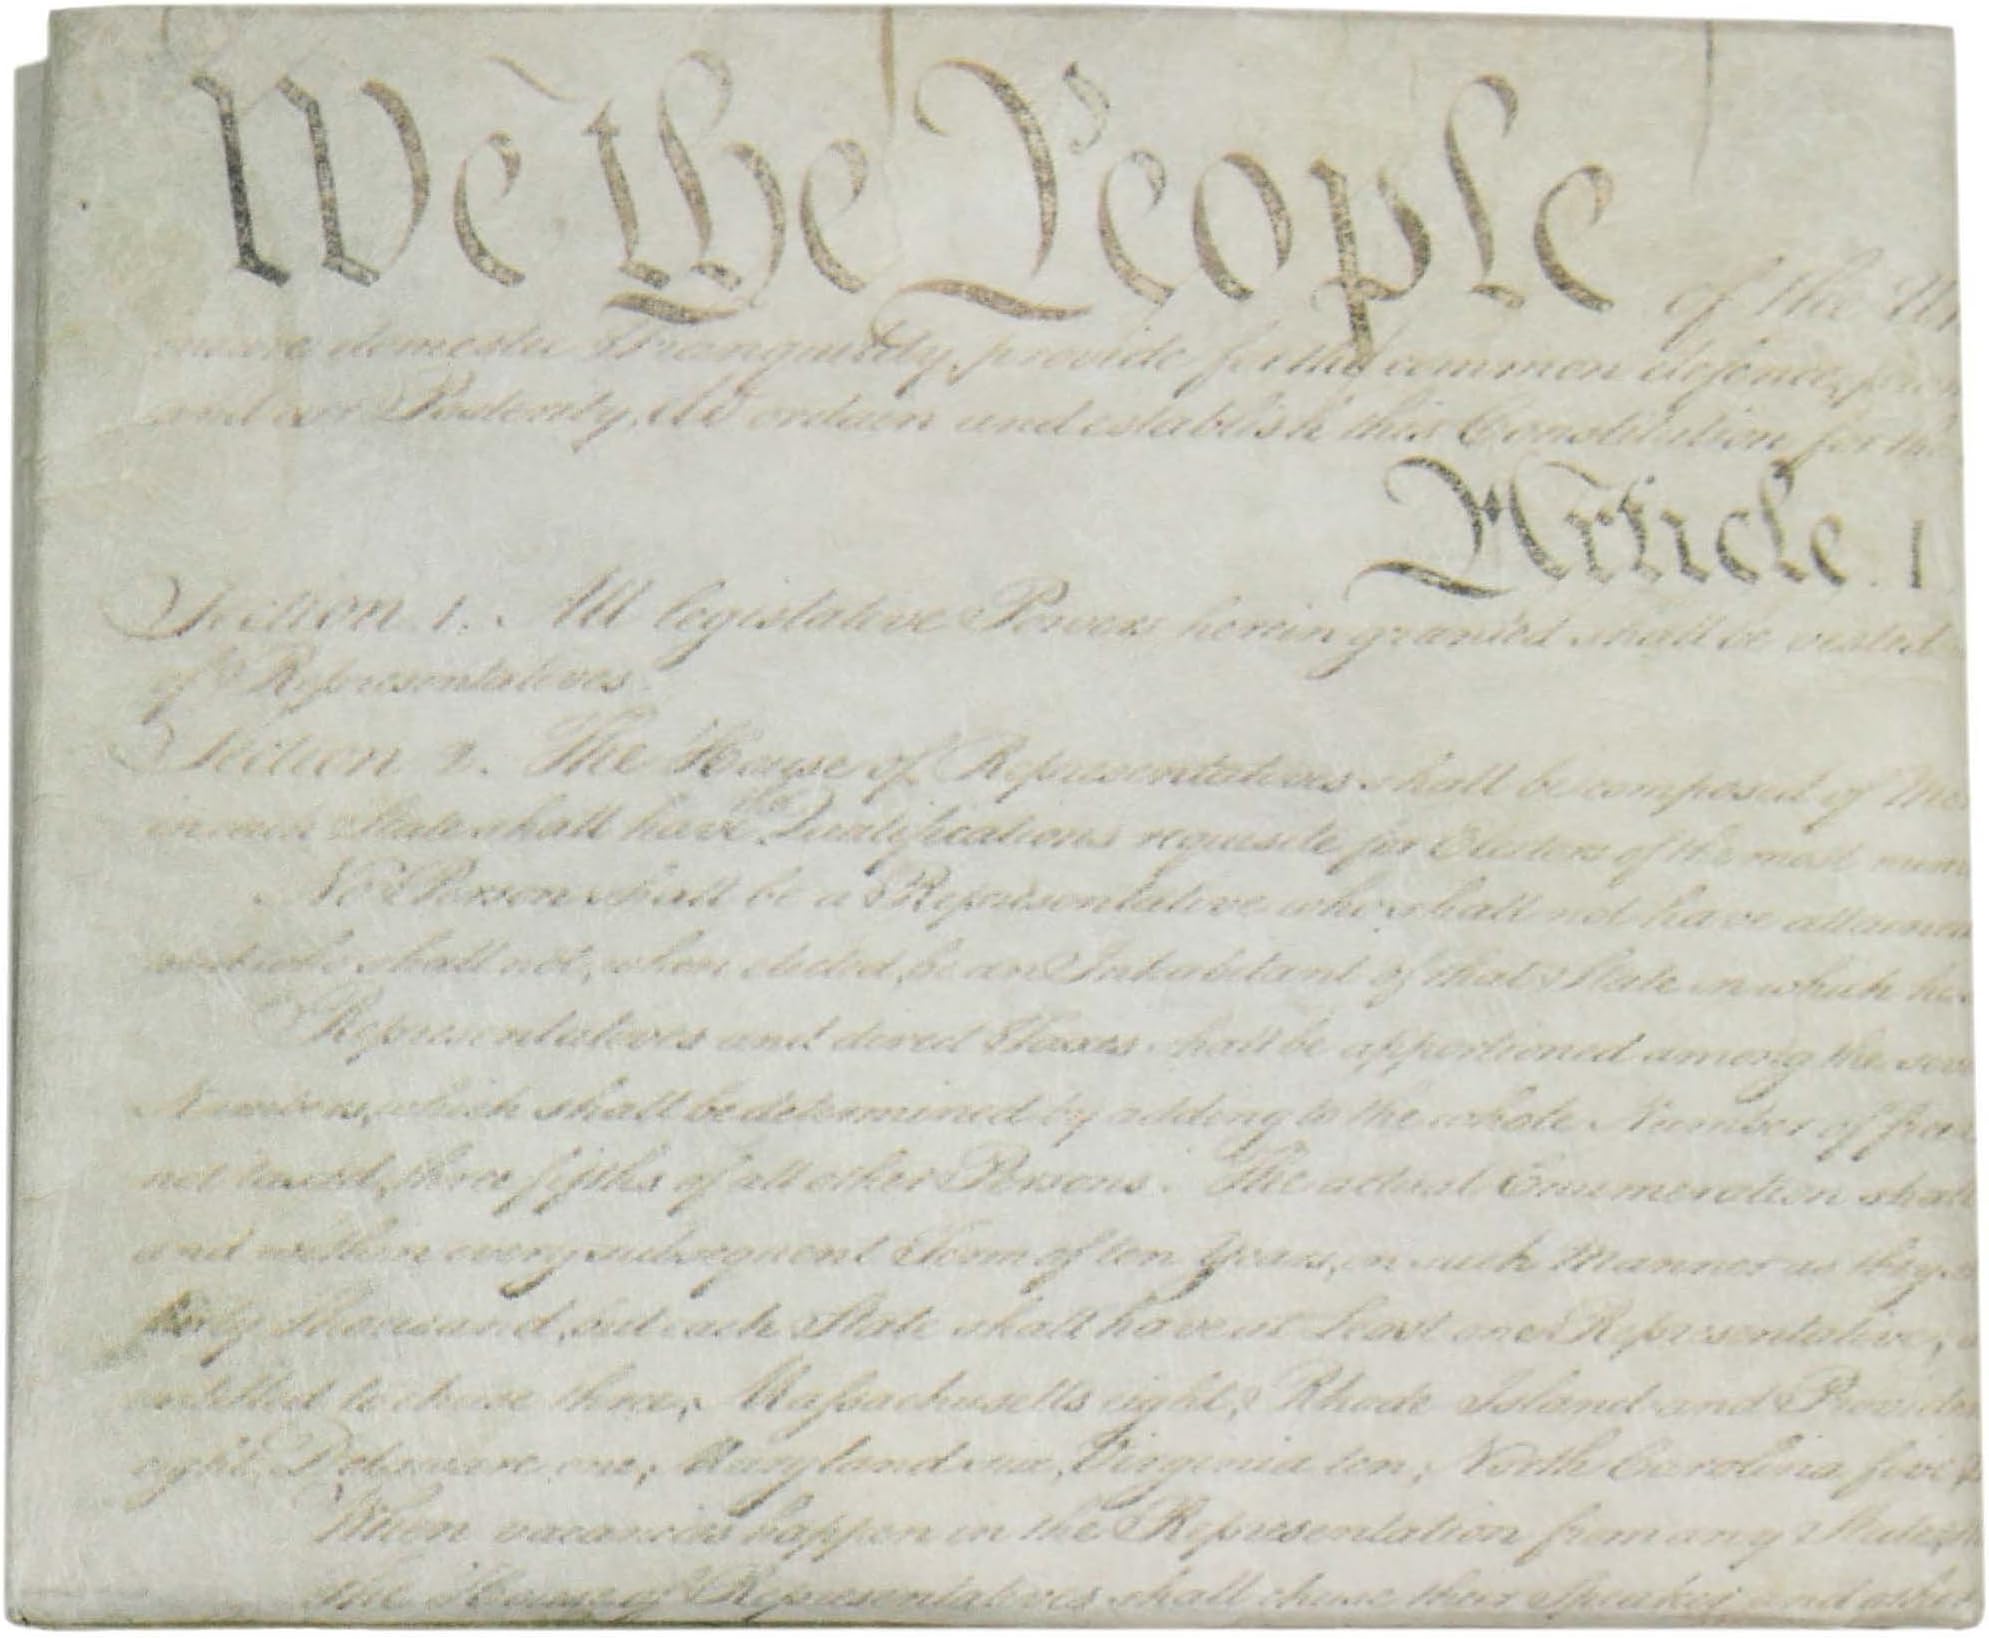 We the People of the Un
insure domestic Tranquility, provide for the common defence, prom
and our Posterity, do ordain and establish this Constitution for the
Article. I
Section. 1. All legislative Powers herein granted shall be vested
of Representatives.
Section. 2. The House of Representatives shall be composed of Mem
the
in each State shall have Qualifications requisite for Electors of the most nume
No Person shall be a Representative who shall not have attained
and who shall not, when elected, be an Inhabitant of that State in which he
Representatives and direct Taxes shall be apportioned among the seve
Numbers, which shall be determined by adding to the whole Number of free
not taxed, three fifths of all other Persons. The actual Enumeration shall
and within every subsequent Term of ten Years, in such Manner as they
thirty Thousand, but each State shall have at Least one Representative;
entitled to chuse three, Massachusetts eight, Rhode Island and Provide
eight, Delaware one, Maryland six, Virginia ten, North Carolina five,
When vacancies happen in the Representation from any State,
The House of Representatives shall chuse their Speaker and other